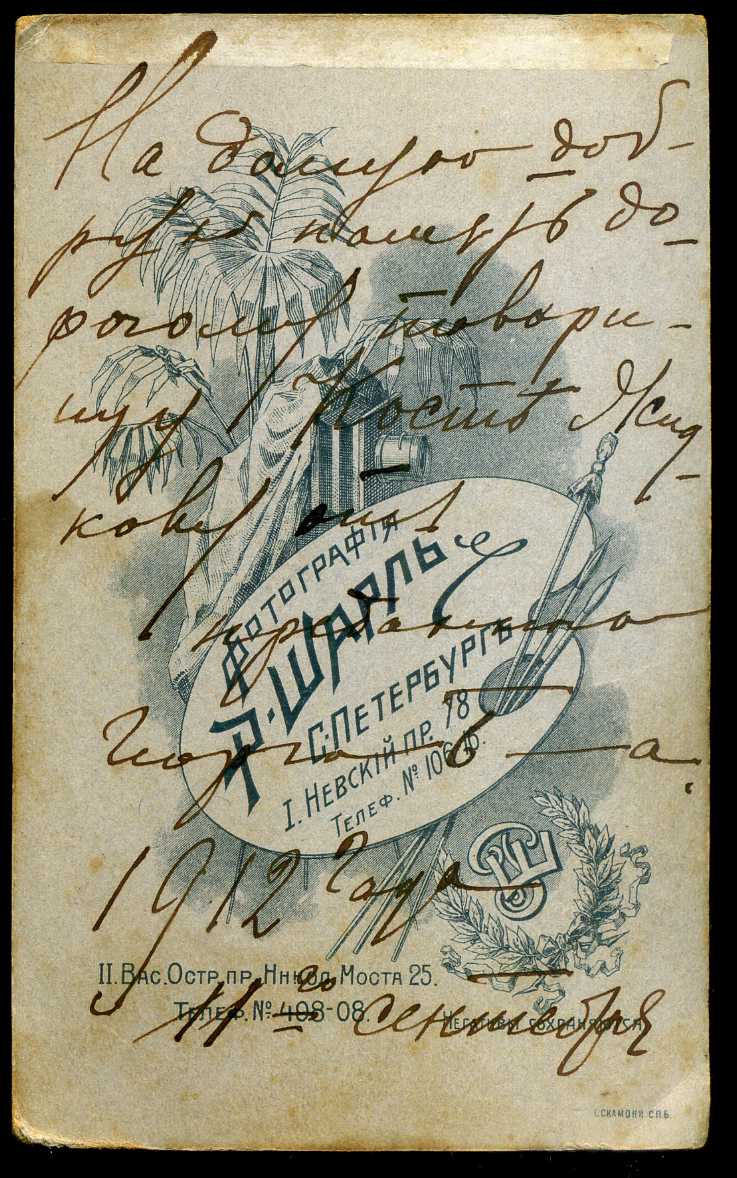 На долгую доб-
рую память до-
рогому товари-
щу Костѣ Жид-
кову отъ
преданнаго
Георгія Б—а.
1912 Года
11го сентября
ФОТОГРАФІЯ
Р. ШАРЛЬ
С-ПЕТЕРБУРГЪ
I. НЕВСКІЙ ПР. 78
ТЕЛЕФ. № 106-
II. ВАС. ОСТР. ПР. НИКОЛ. МОСТА 25.
ТЕЛЕФ. № 498-08.
НЕГАТИВЫ СОХРАНЯЮТСЯ
СКАМОНИ С.П.Б.